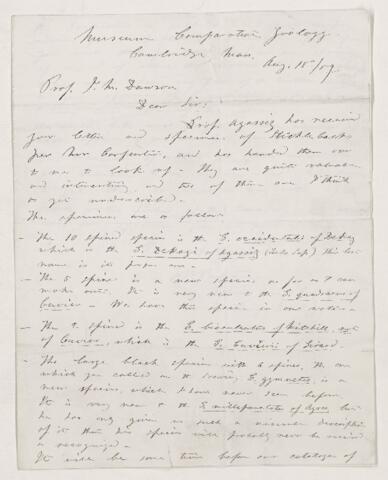 Museum Comparative Zoology
Cambridge Mass.
Aug. 15/59
Prof. J. W. Dawson
Dear Sir:
Prof. Agassiz has received
your letter and specimens of Stickleback
per Mr Carpenter, and has handed them over
to me to look up. They are quite valuable
and interesting and two of them are I think
as yet undescribed.
The specimens are as follows
– The 10 spined specimen is the G. occidentalis of DeKay
which is the G. DeKayi of Agassiz (Lake Sup) this last
name is its proper one.
– The 5 spined is a new species as far as I can
make out. It is very near to the G. quadracus of
Cuvier – We have this species in our
– The 4 spined is the G. biaculeatus of Mitchill, not
of Cuvier, which is the G. Cuvieri of Girard.
– The large black specimen with 6 spines, the one
which you called on the drawing G. gymnetes, is a
new species, which I have never seen before.
It is very near to the G. millepunctatus of Ayres, but
he has only given us such a description
of it that his species will probably never be
recognized.
It will be some time before our catalogue of